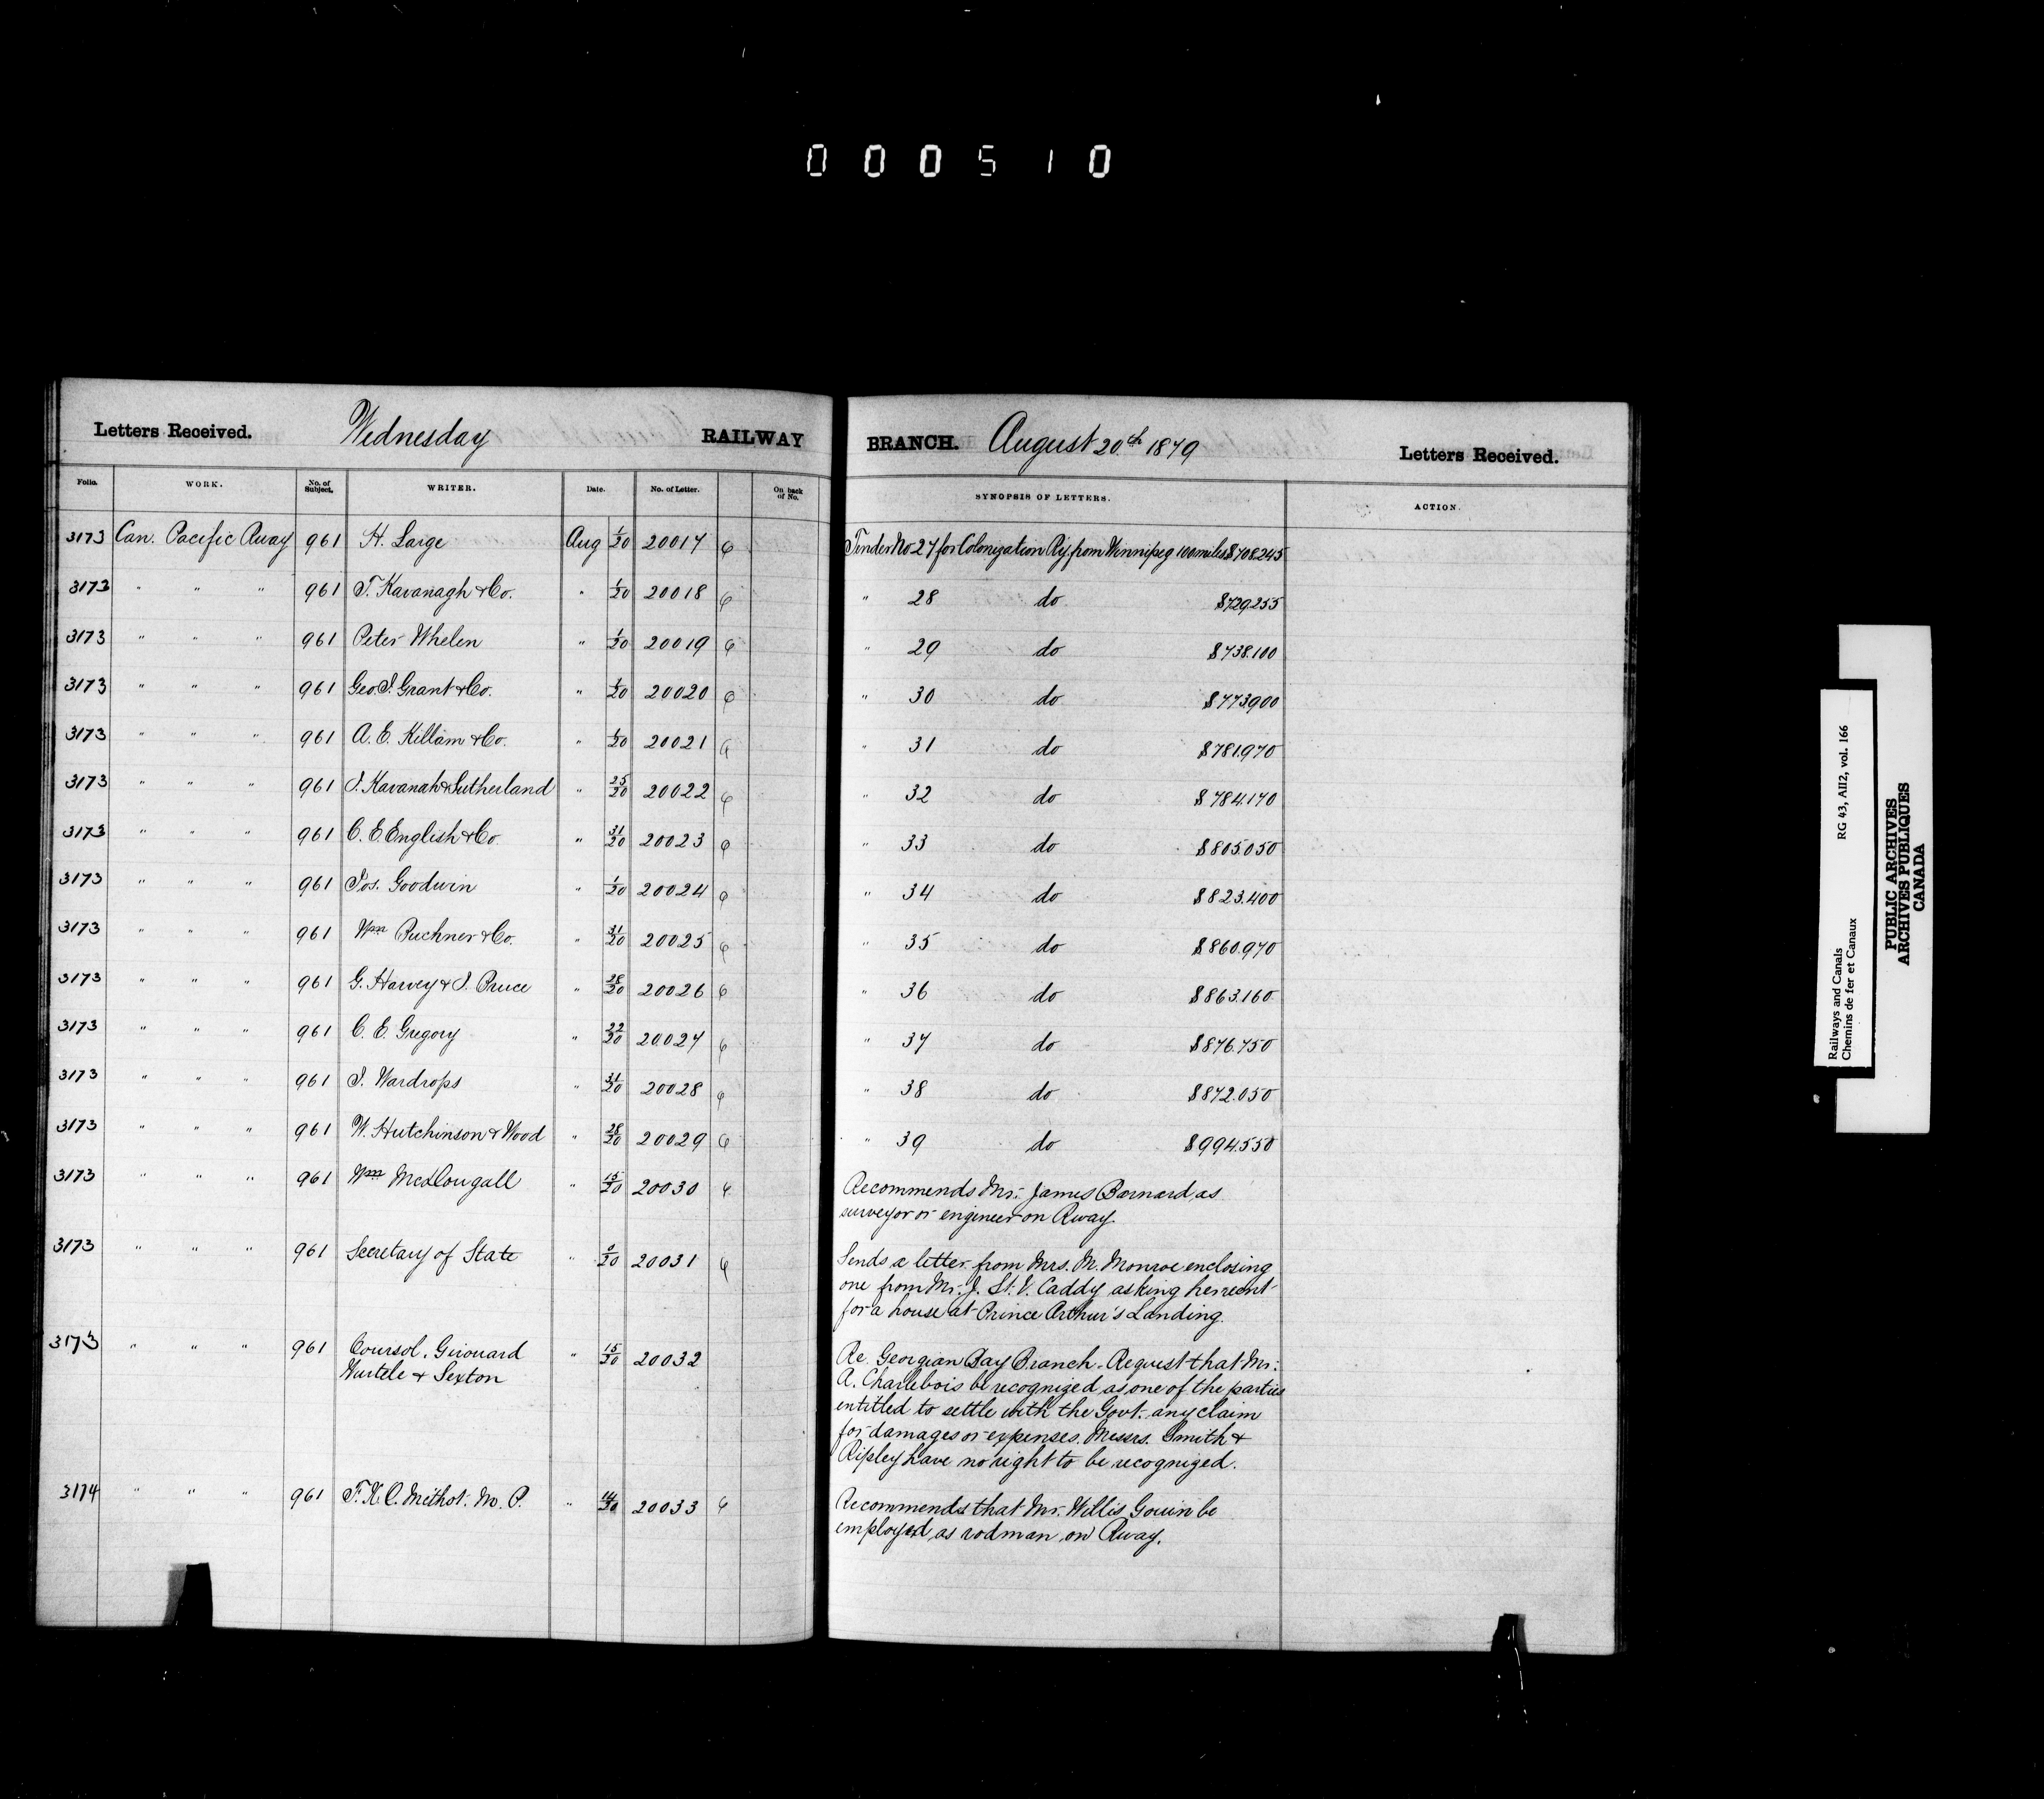 000510
Letters Received. Wednesday RAILWAY BRANCH. August 20th 1879 Letters Received.
Folio. WORK. No. of Subject. WRITER. Date. No. of Letter. On back of No. SYNOPSIS OF LETTERS. ACTION.
3173 Can. Pacific Rway 961 H. Large Aug 1/20 20017 Tender No 27 for Colonization Ry. from Winnipeg 100 miles $708.245
3173 " " " 961 T. Kavanagh & Co. " 1/20 20018 " 28 do $729.255
3173 " " " 961 Peter Whelen " 1/20 20019 " 29 do $738.100
3173 " " " 961 Geo. J. Grant & Co. " 1/20 20020 " 30 do $773900
3173 " " " 961 A. E. Killam & Co. " 1/20 20021 " 31 do $781.970
3173 " " " 961 J. Kavanah & Sutherland " 25/20 20022 " 32 do $784.170
3173 " " " 961 C. E. English & Co. " 31/20 20023 " 33 do $805.050
3173 " " " 961 Jos. Goodwin " 1/20 20024 " 34 do $823.400
3173 " " " 961 Wm Puchner & Co. " 31/20 20025 " 35 do $860.970
3173 " " " 961 G. Harvey & J. Pruce " 28/20 20026 " 36 do $863.160
3173 " " " 961 C. E. Gregory " 22/20 20027 " 37 do $876.750
3173 " " " 961 J. Wardrops " 31/20 20028 " 38 do $872.050
3173 " " " 961 W. Hutchinson & Wood " 28/20 20029 " 39 do $994.550
3173 " " " 961 Wm McDougall " 15/20 20030 Recommends Mr. James Barnard, as
surveyor or engineer on Rway.
3173 " " " 961 Secretary of State " /20 20031 Sends a letter from Mrs. M. Monroe enclosing
one from Mr. J. St. V. Caddy asking her rent
for a house at Prince Arthur's Landing.
3173 " " " 961 Coursol, Girouard " 15/20 20032 Re. Georgian Bay Branch. Request that Mr.
Wurtele & Sexton A. Charlebois be recognized as one of the parties
entitled to settle with the Govt. any claim
for damages or expenses. Messrs. Smith &
Ripley have no right to be recognized.
3174 " " " 961 F. X. O. Méthot. M. P. " 14/20 20033 Recommends that Mr. Willis Gouin be
employed as rodman on Rway.
Railways and Canals RG 43, AII2, vol. 166
Chemins de fer et Canaux
PUBLIC ARCHIVES
ARCHIVES PUBLIQUES
CANADA